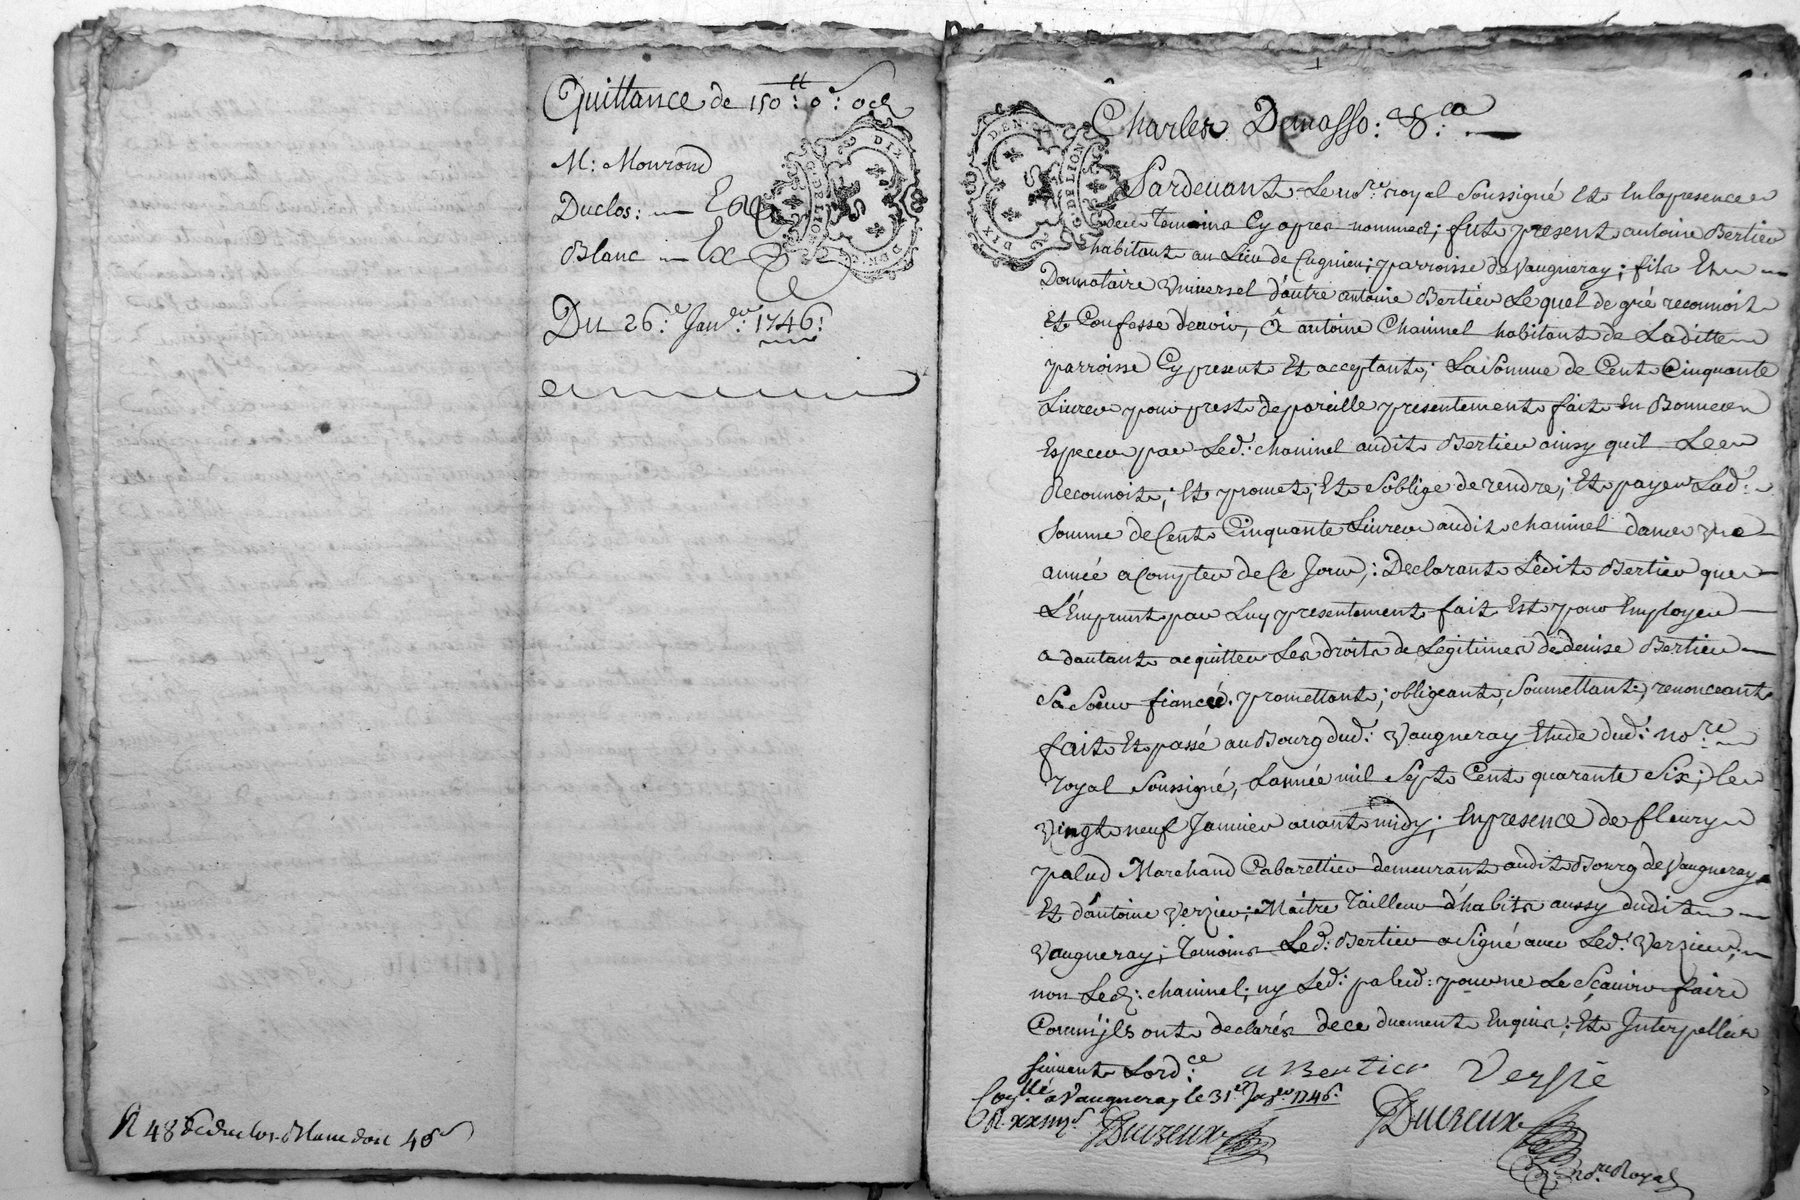 Quittance de 150tt: 0s: 0d
M: Mourond
Duclos: — Ex
Blanc — Ex
Du 26.e Janer: 1746:
R 48s de duclos. Blanc doit 46s
Charles Demasso: &.ca —
Pardevant Le no.re royal Soussigné Et En la presence
des temoins Cy apres nommed; fut present antoine Bertier
habitant au Lieu de Cugnieu; parroisse de Vaugneray; fils Et
Donnataire Universel d'autre antoine Bertier Lequel de gré reconnoit
Et Confesse devoir, A antoine Chaninel habitant de Laditte
parroisse Cy present Et acceptant; La Somme de Cent Cinquante
Livres pour prest de pareille presentement fait En Bonnes
Especes par Led: chaninel audit Bertier ainsy quil Le
Reconnoit; Et promet; Et S'oblige de rendre; Et payer Lad:
Somme de Cent Cinquante Livres audit chaninel dans une
année a Compter de Ce Jour; Declarant Ledit Bertier que
L'Emprunt par Luy presentement fait Est pour Employer
a dautant acquitter Les droits de Legitimes de denise Bertier
Sa Soeur fiancée. promettant; obligeant, Soumettant, renonceant
fait Et passé au Bourg dud: Vaugneray Etude dud: no.re
royal Soussigné, L'année mil Sept Cent quarante Six; le
Vingt neuf Janvier avant midy; En presence de fleury
palud Marchand Cabarettier demeurant audit Bourg de Vaugneray
Et d'antoine Verzier; Maitre Tailleur d'habits aussy dudit
Vaugneray; Temoins Led: Bertier a Signé avec Led: Verzier;
non Led: chaninel; ny Led: palud: pour ne Le Scavoir faire
Comm'jls ont declarés de ce duement Enquis; Et Interpellés
suivant Lord:ce a Bertier Versié
Con.llé a Vaugneray le 31.e Janer 1746:
R. xxiiijs Ducreux Ducreux
no.re Royal